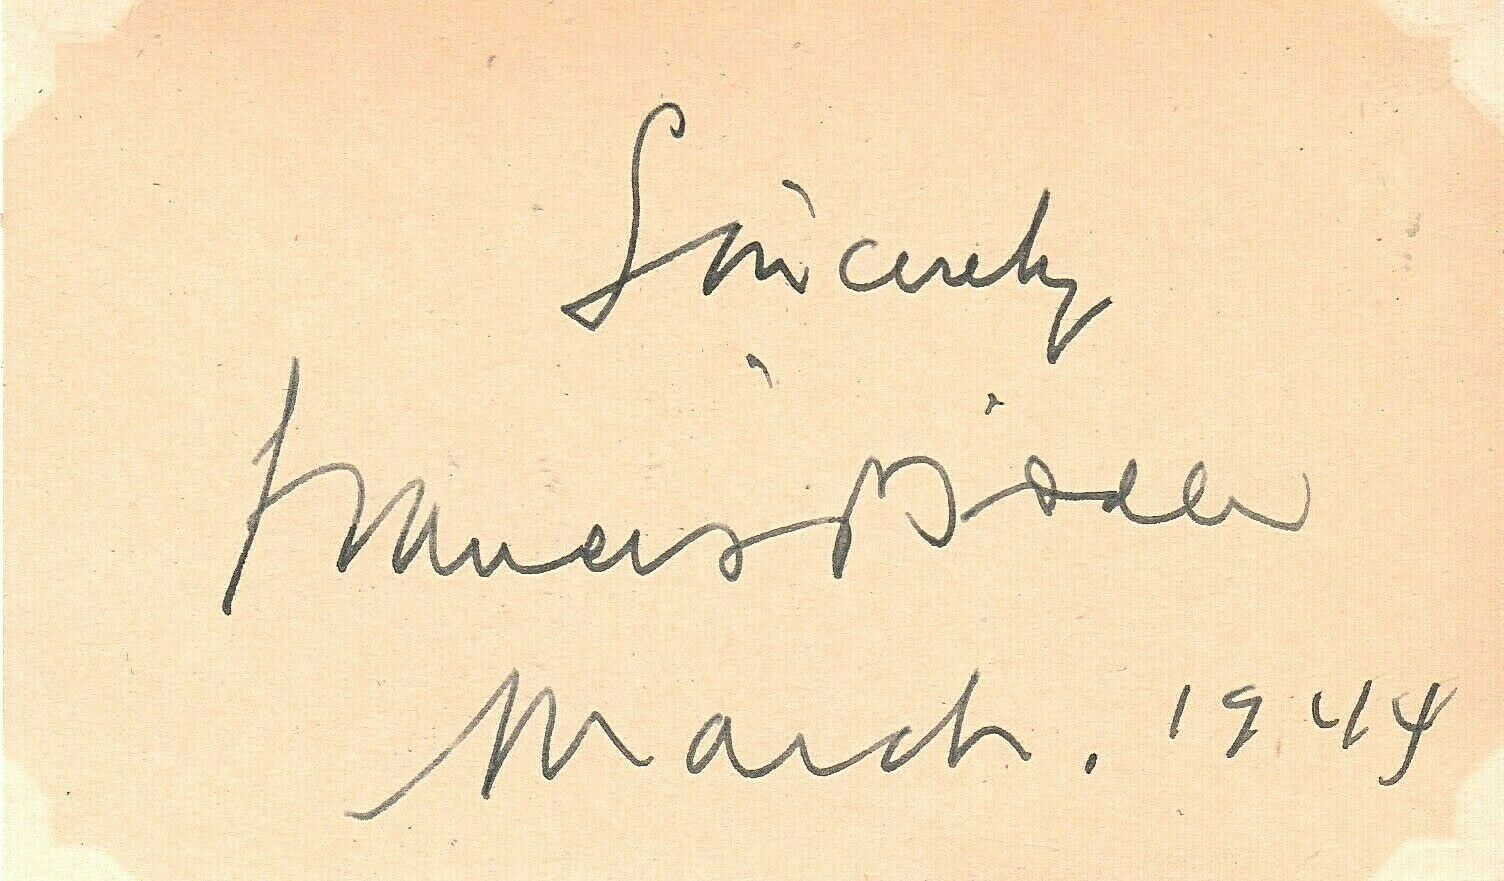 Sincerely
Francis Biddle
March. 1944